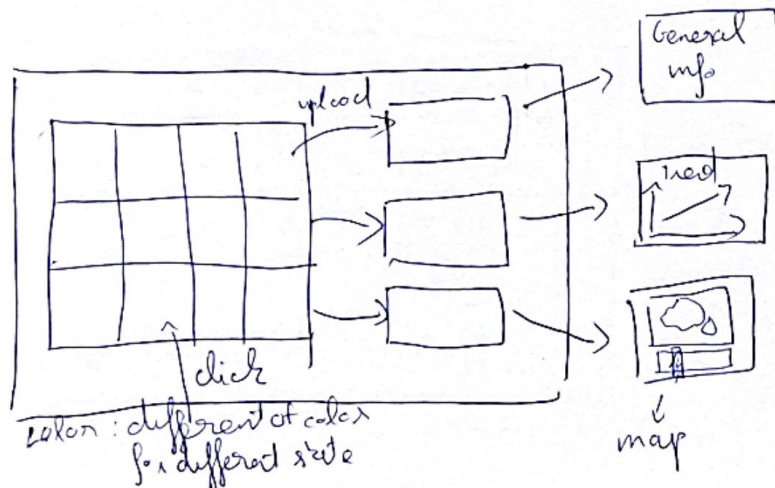 General
info
upload
Trend
click
color : different of color
for different state
map